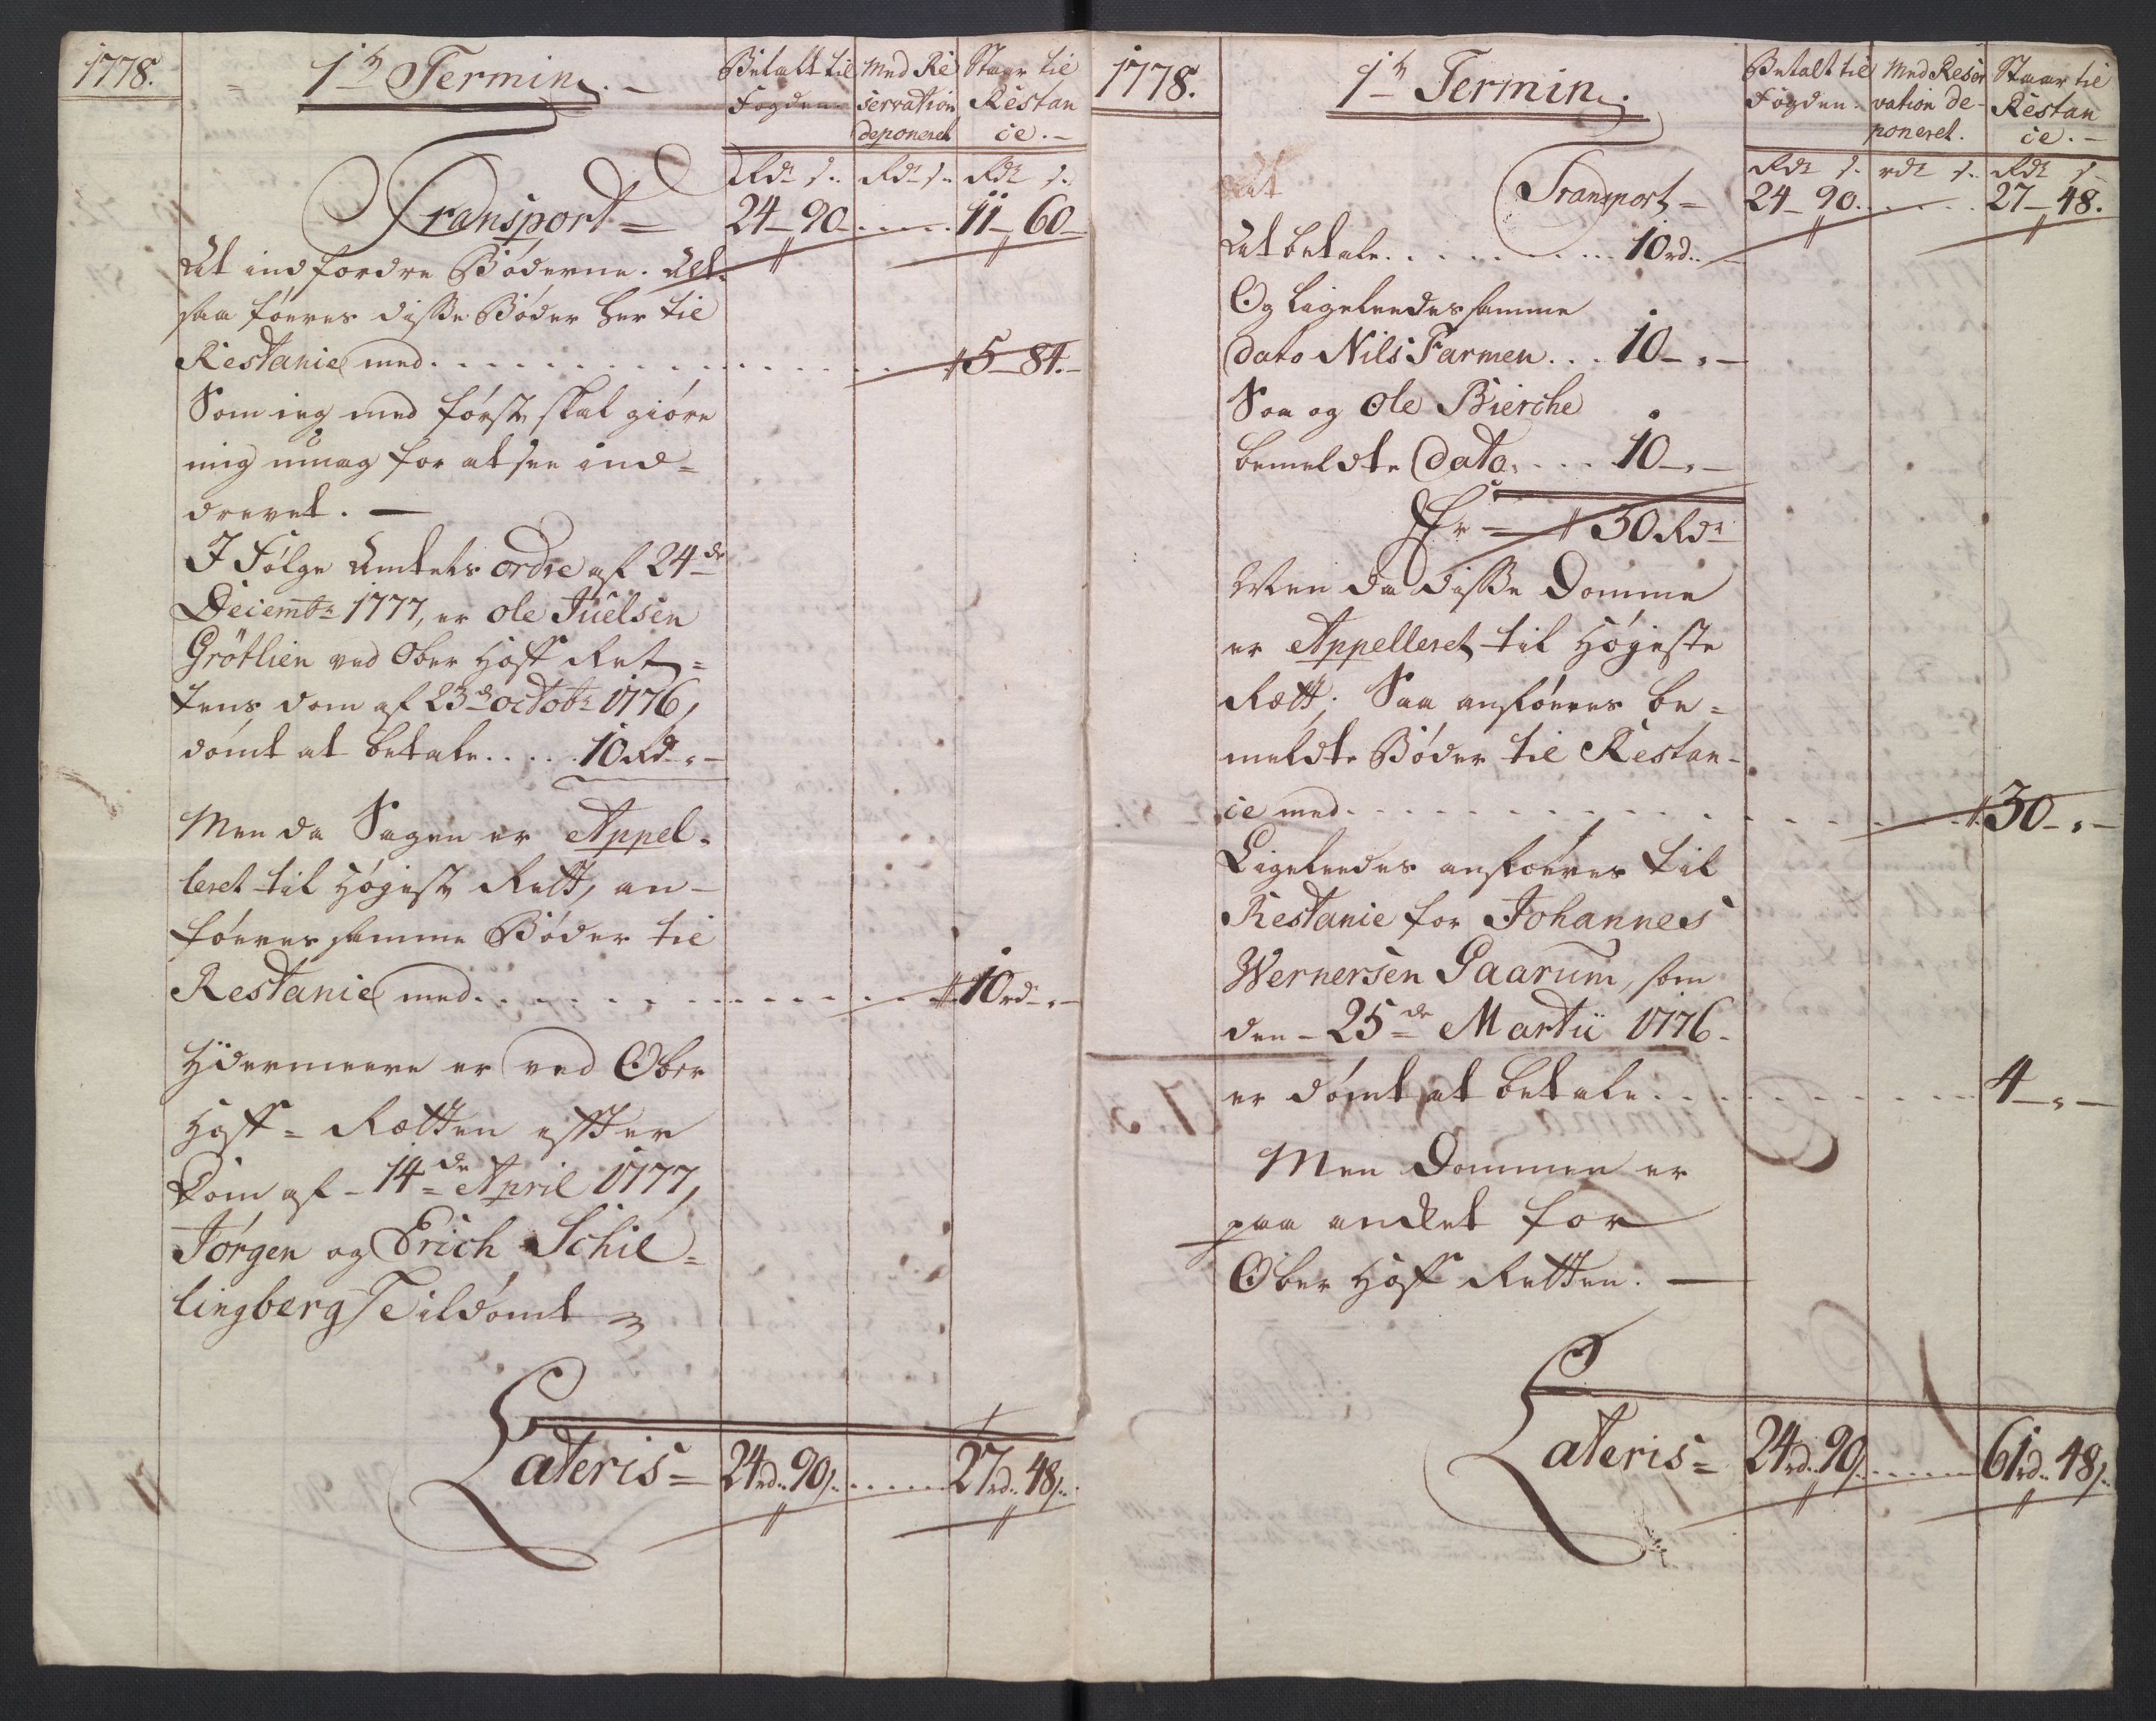 1778.
1te Termin. -
Betalt til Fogden.
Med Reservation deponeret
Staar til Restance. -
Rdr s. Rdr s. Rdr s.
Transport = 24 - 90 - . . . . . 11 - 60 -
At indfordre Bøderne. Alt-
saa føeres disse Bøder her til
Restance med . . . . . . . . . . . 5 - 84. -
Som ieg med første skal giøre
mig umag for at see ind=
drevet. —
I Følge Amtets ordre af 24de
Decembr 1777, er Ole Juelsen
Grøtlien ved Ober Hoff Ret=
tens dom af 23de octobr 1776,
dømt at betale . . . . . 10 Rd - „ -
Men da Sagen er Appel=
leret til Høgeste Rett, an-
føeres samme Bøder til
Restance med . . . . . . . . . . . 10 rd - „ -
Ydermeere er ved Ober
Hoff = Retten efter
Dom af - 14de April 1777,
Jørgen og Erich Schil=
lingberg Tildømt
Lateris = 24 rd. 90 s. . . . . . 27 rd. 48 s.
1778.
1te Termin.
Betalt til Fogden.
Med Reservation deponeret.
Staar til Restance. -
Rdr s. rdr s. Rdr s
Transport = 24 - 90. . . . . . 27 - 48.
At betale . . . . . . . . . 10 rd. . -
Og ligeleedes samme
dato Nils Farmen . . . 10 - „ -
Saa og Ole Bierche
bemeldte dato . . . . 10 - „ -
Er = 30 Rdr
Men da disse Domme
er Appelleret til Høgeste
Rett; Saa anføeres be=
meldte Bøder til Restan-
ce med . . . . . . . . . . . . . 30 - „ -
Ligeleedes anføeres til
Restance for Johannes
Wernersen Gaarum, som
den - 25de Martii 1776 -
er dømt at betale . . . . . . . . . 4 - „ -
Men Dommen er
paa anket for
Ober Hoff Retten. —
Lateris = 24 rd. 90 s. . . . . . 61 rd. 48 s.